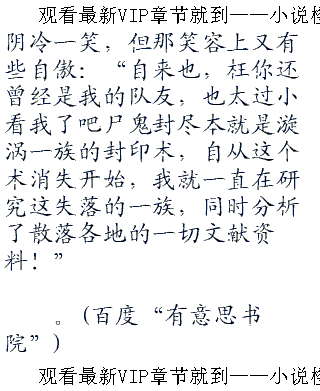 观看最新VIP章节就到——小说检
阴冷一笑，但那笑容上又有
些自傲：“自来也，枉你还
曾经是我的队友，也太过小
看我了吧尸鬼封尽本就是漩
涡一族的封印术，自从这个
术消失开始，我就一直在研
究这失落的一族，同时分析
了散落各地的一切文献资
料！”
。(百度“有意思书
院”)
观看最新VIP章节就到——小说检